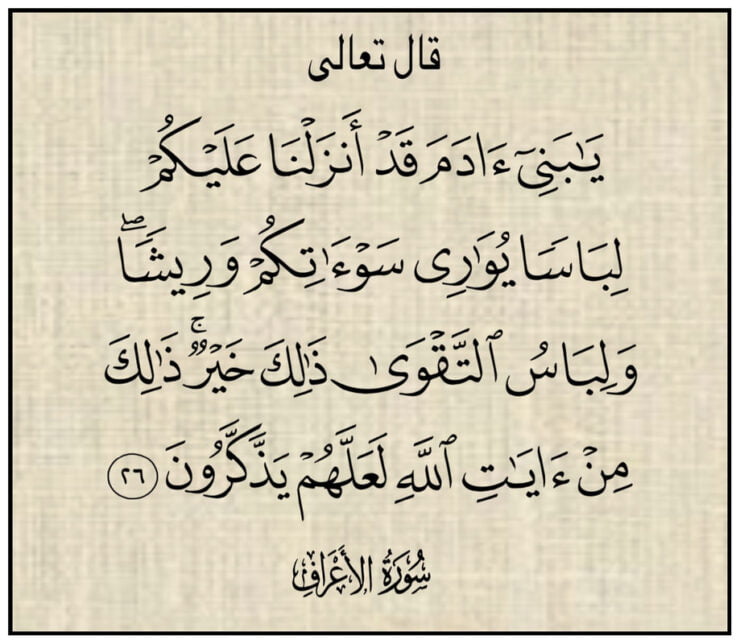 قال تعالى
يَـٰبَنِىٓ ءَادَمَ قَدْ أَنزَلْنَا عَلَيْكُمْ
لِبَاسًا يُوَٰرِى سَوْءَٰتِكُمْ وَرِيشًا ۖ
وَلِبَاسُ ٱلتَّقْوَىٰ ذَٰلِكَ خَيْرٌ ۚ ذَٰلِكَ
مِنْ ءَايَـٰتِ ٱللَّهِ لَعَلَّهُمْ يَذَّكَّرُونَ ٢٦
سُورَةُ الأَعْرَافِ